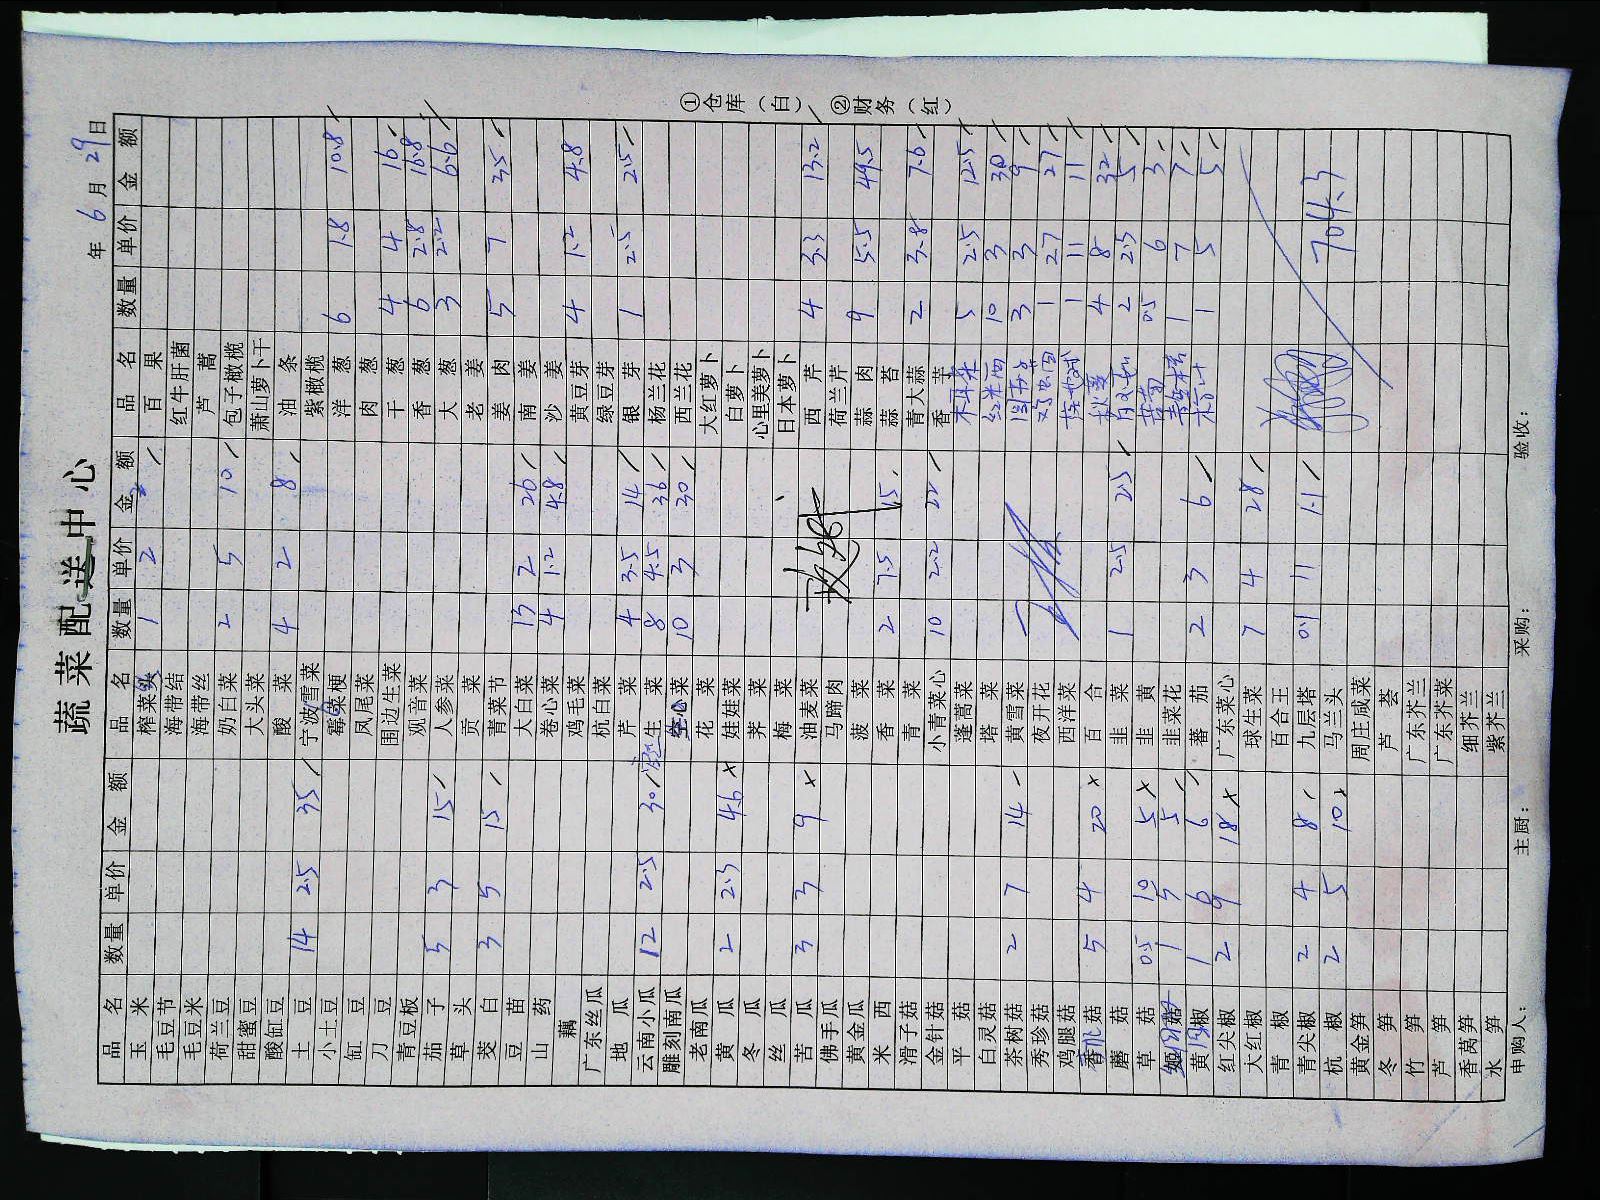 蔬菜配送中心
年 6 月 29 日
品名 数量 单价 金额 品名 数量 单价 金额 品名 数量 单价 金额
玉米 榨菜 1 2 2 百果
毛豆节 海带结 红牛肝菌
毛豆米 海带丝 芦蒿
荷兰豆 奶白菜 2 5 10 包子橄榄
甜蜜豆 大头菜 萧山萝卜干
酸缸豆 酸菜 4 2 8 油条
土豆 14 2.5 35 宁波雪菜 紫橄榄
小土豆 霉菜梗 洋葱 6 1.8 10.8
缸豆 凤尾菜 肉葱
刀豆 围边生菜 干葱 4 4 16
青豆板 观音菜 香葱 6 2.8 16.8
茄子 5 3 15 人参菜 大葱 3 2.2 6.6
草头 贡菜 老姜
茭白 3 5 15 青菜节 姜肉 5 7 35
豆苗 大白菜 13 2 26 南姜
山药 卷心菜 4 1.2 4.8 沙姜
藕 鸡毛菜 黄豆芽 4 1.2 4.8
广东丝瓜 杭白菜 绿豆芽
地瓜 芹菜 4 3.5 14 银芽 1 2.5 2.5
云南小瓜 12 2.5 30 生菜 8 4.5 36 杨兰花
雕刻南瓜 空心菜 10 3 30 西兰花
老南瓜 花菜 大红萝卜
黄瓜 2 2.3 4.6 娃娃菜 白萝卜
冬瓜 荠菜 心里美萝卜
丝瓜 梅菜 日本萝卜
苦瓜 3 3 9 油麦菜 西芹 4 3.3 13.2
佛手瓜 马蹄肉 荷兰芹
黄金瓜 菠菜 蒜肉 9 5.5 49.5
米西 香菜 2 7.5 15 蒜苔
滑子菇 青菜 青大蒜 2 3.8 7.6
金针菇 小青菜心 10 2.2 22 香芋
平菇 蓬蒿菜 木耳菜 5 2.5 12.5
白灵菇 塔菜 红米苋 10 3 30
茶树菇 2 7 14 黄雪菜 3 3 9
秀珍菇 夜开花 1 27 27
鸡腿菇 西洋菜 1 11 11
香菇 5 4 20 百合 秋葵 4 8 32
蘑菇 韭菜 1 2.5 2.5 2 2.5 5
草菇 0.5 10 5 韭黄 0.5 6 3
菇 1 5 5 韭菜花 1 7 7
黄椒 1 6 6 蕃茄 2 3 6 1 5 5
红尖椒 2 9 18 广东菜心
大红椒 球生菜 7 4 28
青椒 百合王
青尖椒 2 4 8 九层塔 0.1 11 1.1 704.3
杭椒 2 5 10 马兰头
黄金笋 周庄咸菜
冬笋 芦荟
竹笋 广东芥兰
芦笋 广东芥菜
香莴笋 细芥兰
水笋 紫芥兰
申购人： 主厨： 采购： 验收：
①仓库（白） ②财务（红）